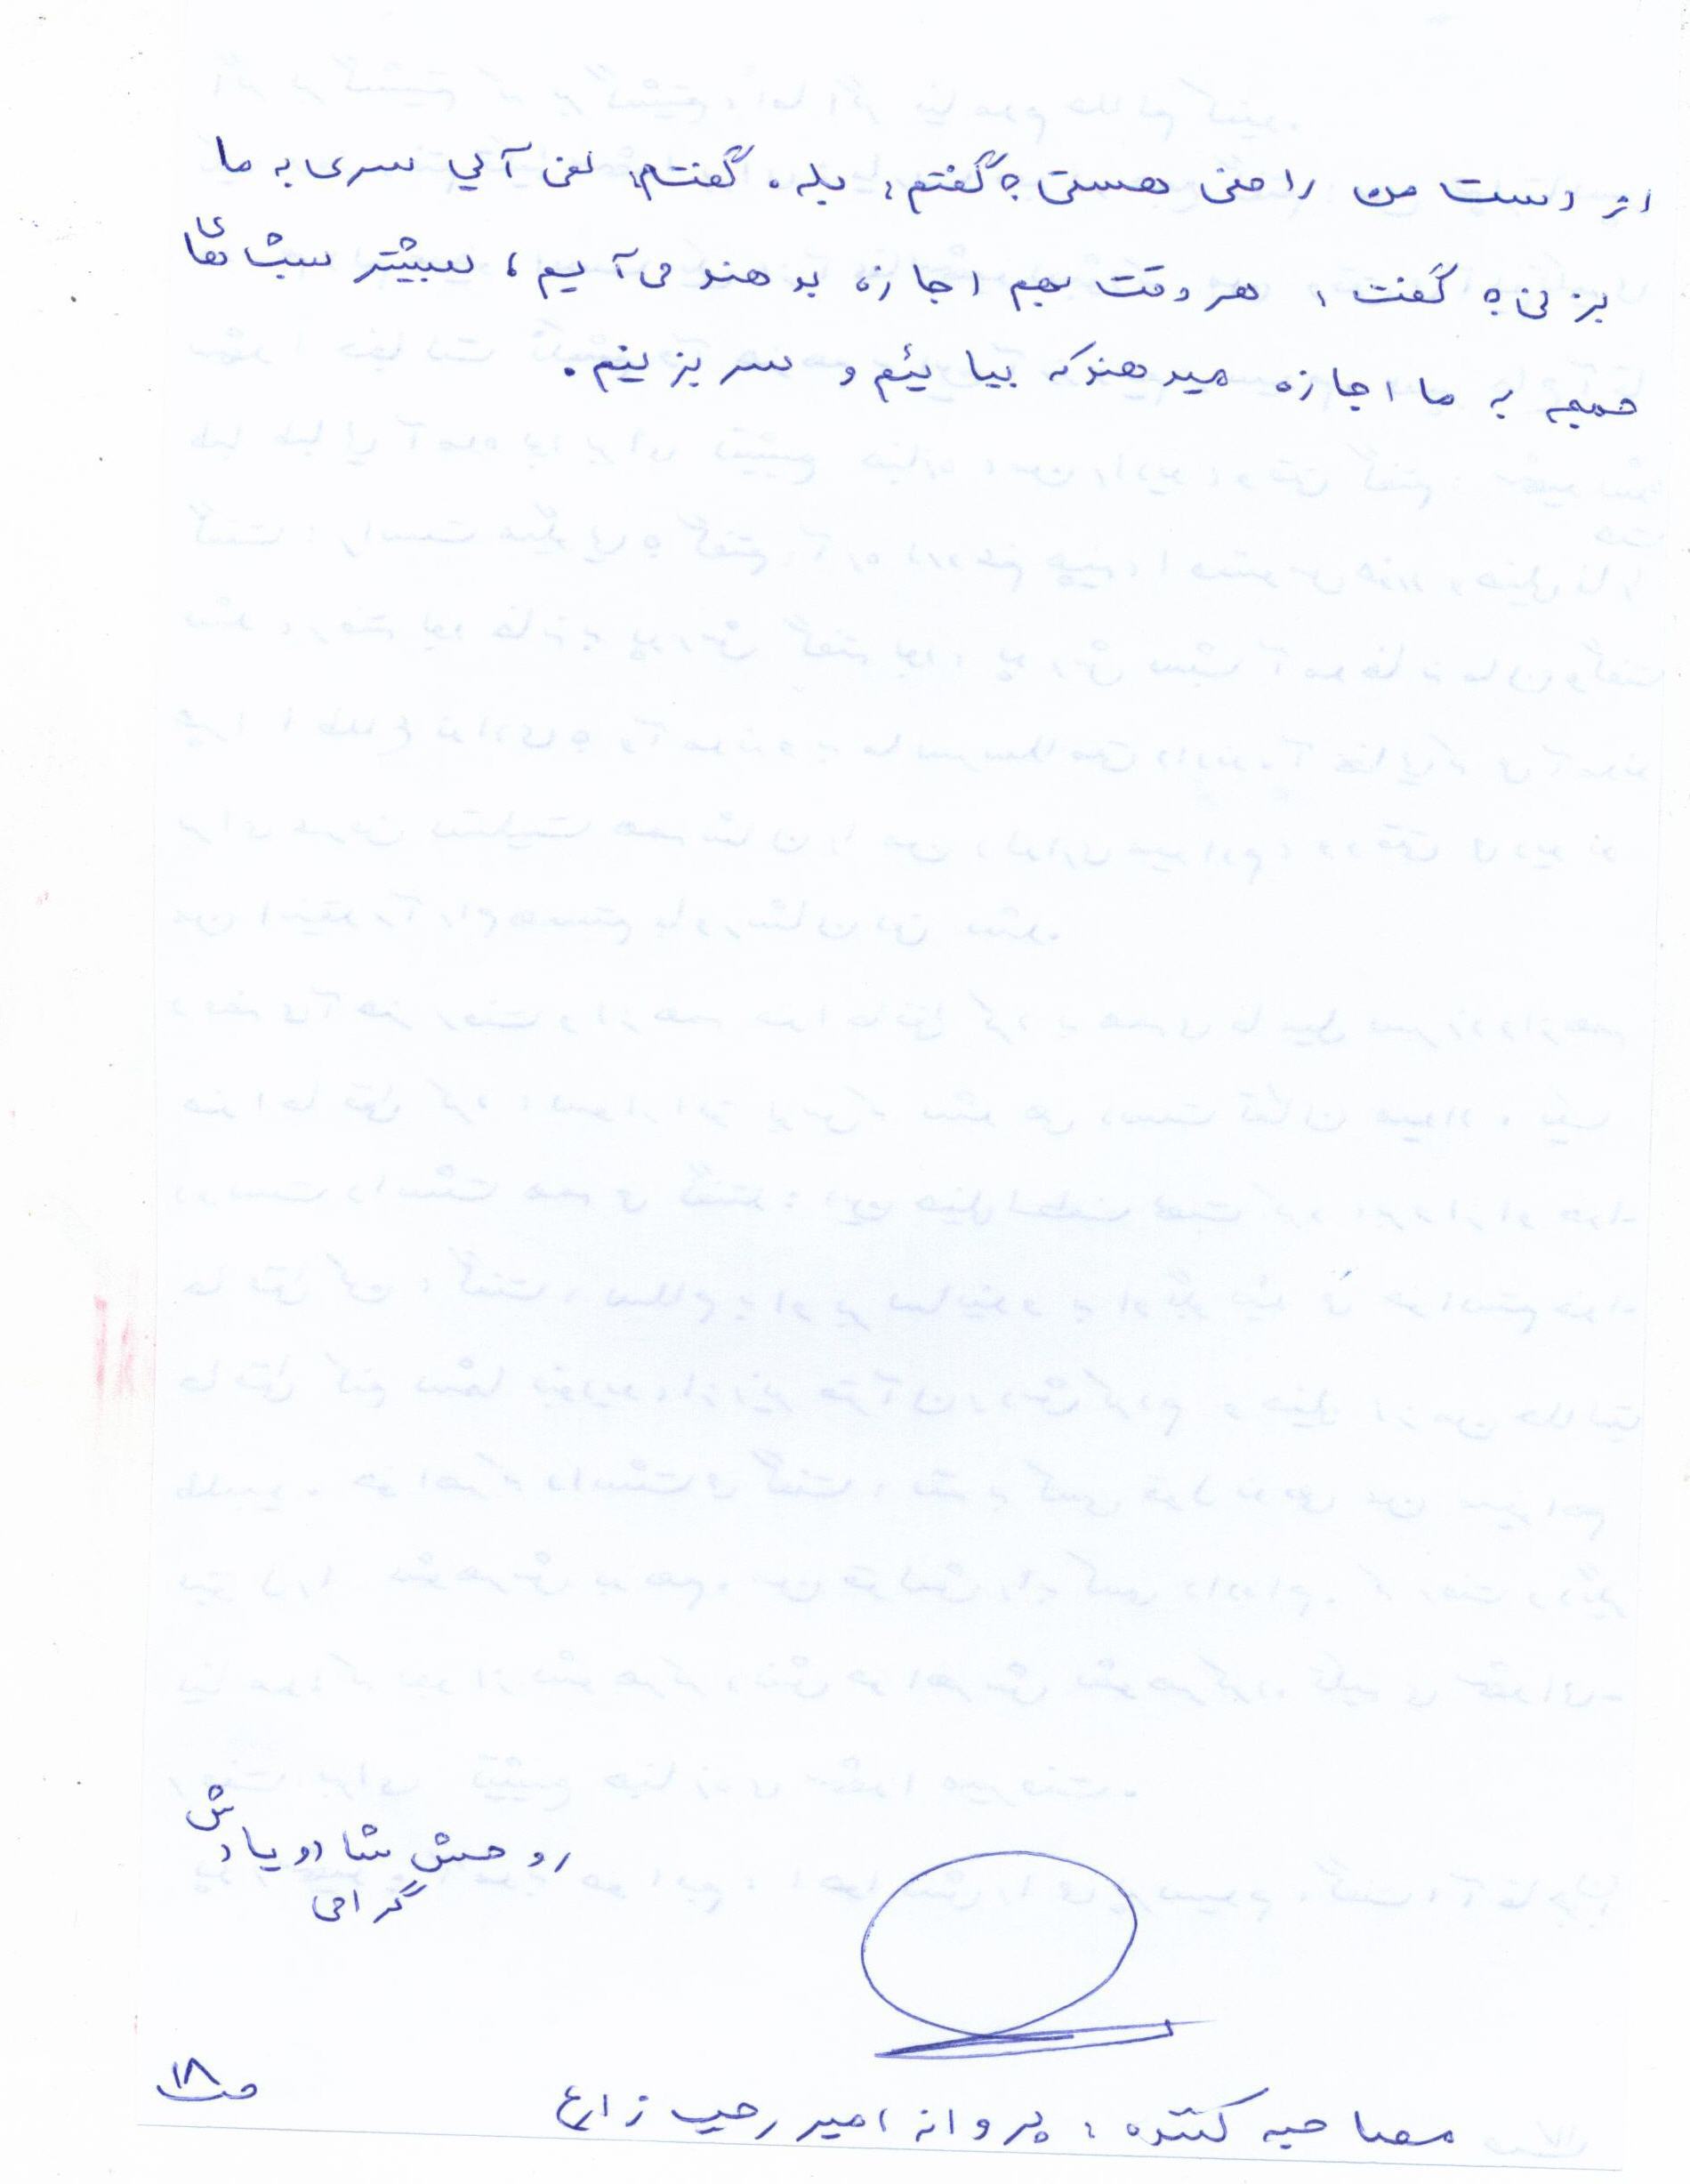 از دست من راضی هستی؟ گفتم: بله. گفتم: نمی آیی سری به ما
بزنی؟ گفت: هر وقت بهم اجازه بدهند می آیم، بیشتر شب های
جمعه به ما اجازه میدهند که بیائیم و سر بزنیم.
روحش شاد و یادش
گرامی
مصاحبه کننده: پروانه امیر رجب زارع
ص ۱۸